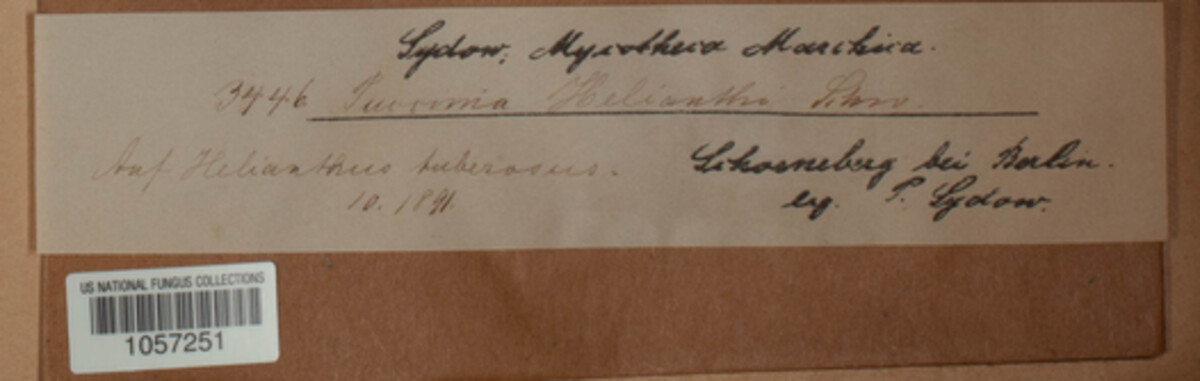 Sydow, Mycotheca Marchica.
3446 Puccinia Helianthi Schw.
Auf Helianthus tuberosus.
10. 1891.
Schoeneberg bei Berlin.
leg. P. Sydow.
US NATIONAL FUNGUS COLLECTIONS
1057251